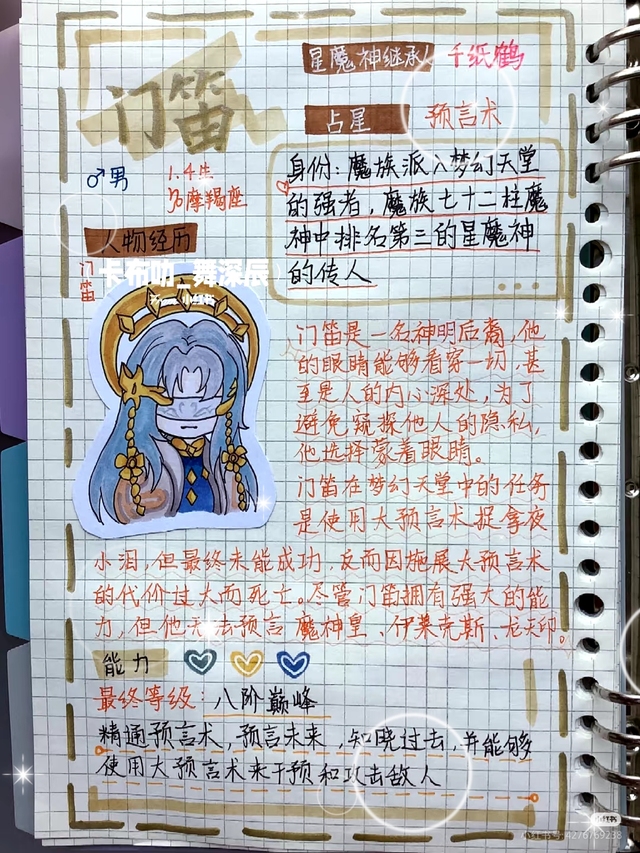 星魔神继承人 千纸鹤
门笛
占星 预言术
♂男
1.4生
♑摩羯座
身份:魔族派入梦幻天堂
的强者,魔族七十二柱魔
神中排名第三的星魔神
的传人
人物经历
门笛
卡布叻_舞深辰
小红书
门笛是一名神明后裔,他
的眼睛能够看穿一切,甚
至是人的内心深处,为了
避免窥探他人的隐私,
他选择蒙着眼睛。
门笛在梦幻天堂中的任务
是使用大预言术捉拿夜
小泪,但最终未能成功,反而因施展大预言术
的代价过大而死亡。尽管门笛拥有强大的能
力,但他无法预言魔神皇、伊莱克斯、龙天印。
能力
最终等级:八阶巅峰
精通预言术,预言未来,知晓过去,并能够
使用大预言术来干预和攻击敌人
小红书
小红书号:4276769238